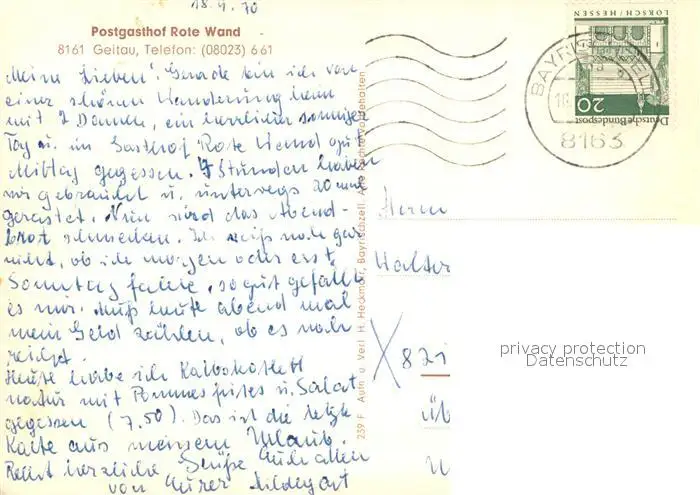 18.9.70
Postgasthof Rote Wand
8161 Geitau, Telefon: (08023) 661
Meine Lieben! Gerade bin ich von
einer schönen Wanderung heim
mit 2 Damen, ein herrlich sonniger
Tag u. im Gasthof Rote Wand zu
Mittag gegessen. 7 Stunden haben
wir gebraucht u. unterwegs 20 min
gerastet. Nun wird das Abend-
brot schmecken. Ich weiß noch gar
nicht, ob ich morgen oder erst
Sonntag fahre, so gut gefällt
es mir. Muß heute abend mal
mein Geld zählen, ob es noch
reicht.
Heute habe ich Kalbskotelett
natur mit Pommes frites u. Salat
gegessen (7.50). Das ist die letzte
Karte aus meinem Urlaub.
Recht herzliche Grüße Euch allen
von Eurer Hildegart
239 F Aufn. u. Verl. H. Heckmair, Bayrischzell. Alle Rechte vorbehalten
LORSCH / HESSEN
20
Deutsche Bundespost
BAYRISCHZELL
8163
Herrn
Walter
821
Üb
privacy protection
Datenschutz